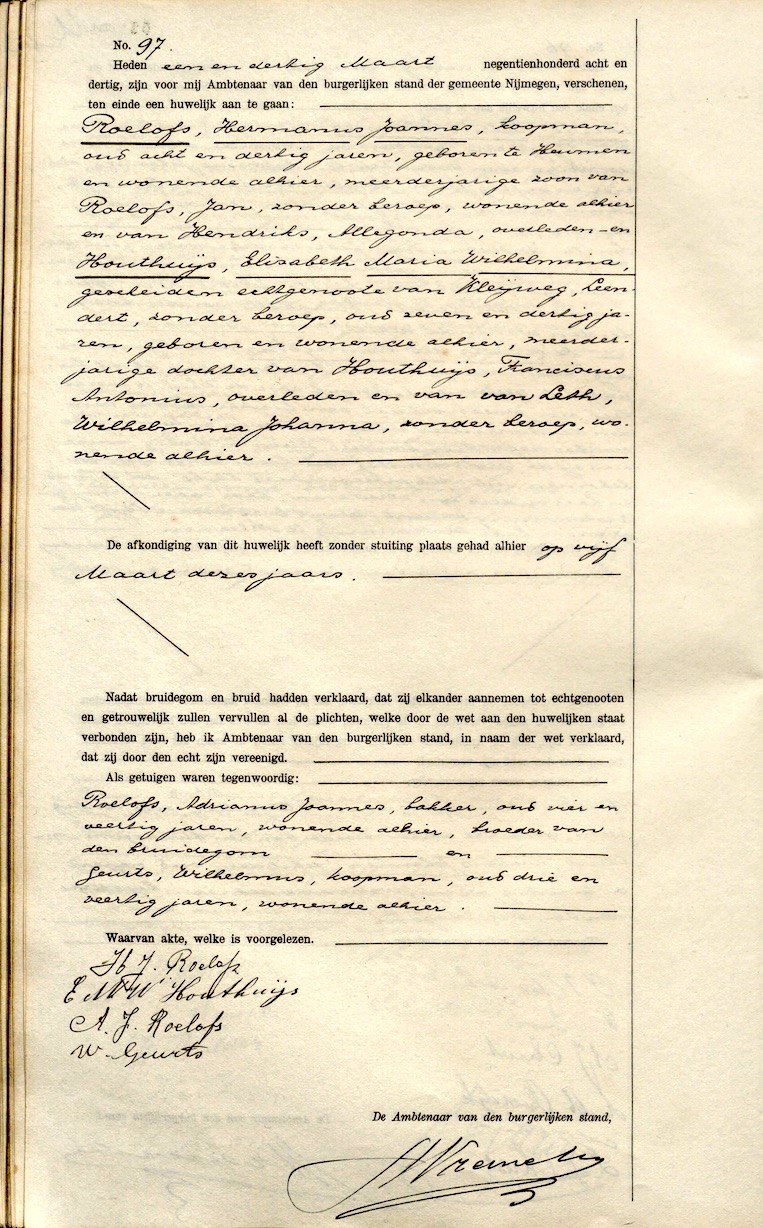 No. 97.
Heden een en dertig Maart negentienhonderd acht en
dertig, zijn voor mij Ambtenaar van den burgerlijken stand der gemeente Nijmegen, verschenen,
ten einde een huwelijk aan te gaan:
Roelofs, Hermanus Joannes, koopman,
oud acht en dertig jaren, geboren te Heumen
en wonende alhier, meerderjarige zoon van
Roelofs, Jan, zonder beroep, wonende alhier
en van Hendriks, Allegonda, overleden - en
Houthuijs, Elisabeth Maria Wilhelmina,
gescheiden echtgenoote van Kleijweg, Leen-
dert, zonder beroep, oud zeven en dertig ja-
ren, geboren en wonende alhier, meerder-
jarige dochter van Houthuijs, Franciscus
Antonius, overleden en van van Leth,
Wilhelmina Johanna, zonder beroep, wo-
nende alhier.
De afkondiging van dit huwelijk heeft zonder stuiting plaats gehad alhier op vijf
Maart dezes jaars.
Nadat bruidegom en bruid hadden verklaard, dat zij elkander aannemen tot echtgenooten
en getrouwelijk zullen vervullen al de plichten, welke door de wet aan den huwelijken staat
verbonden zijn, heb ik Ambtenaar van den burgerlijken stand, in naam der wet verklaard,
dat zij door den echt zijn vereenigd.
Als getuigen waren tegenwoordig:
Roelofs, Adrianus Joannes, bakker, oud vier en
veertig jaren, wonende alhier, broeder van
den bruidegom en
Geurts, Wilhelmus, koopman, oud drie en
veertig jaren, wonende alhier.
Waarvan akte, welke is voorgelezen.
H J. Roelofs
E M W Houthuijs
A. J. Roelofs
W. Geurts
De Ambtenaar van den burgerlijken stand,